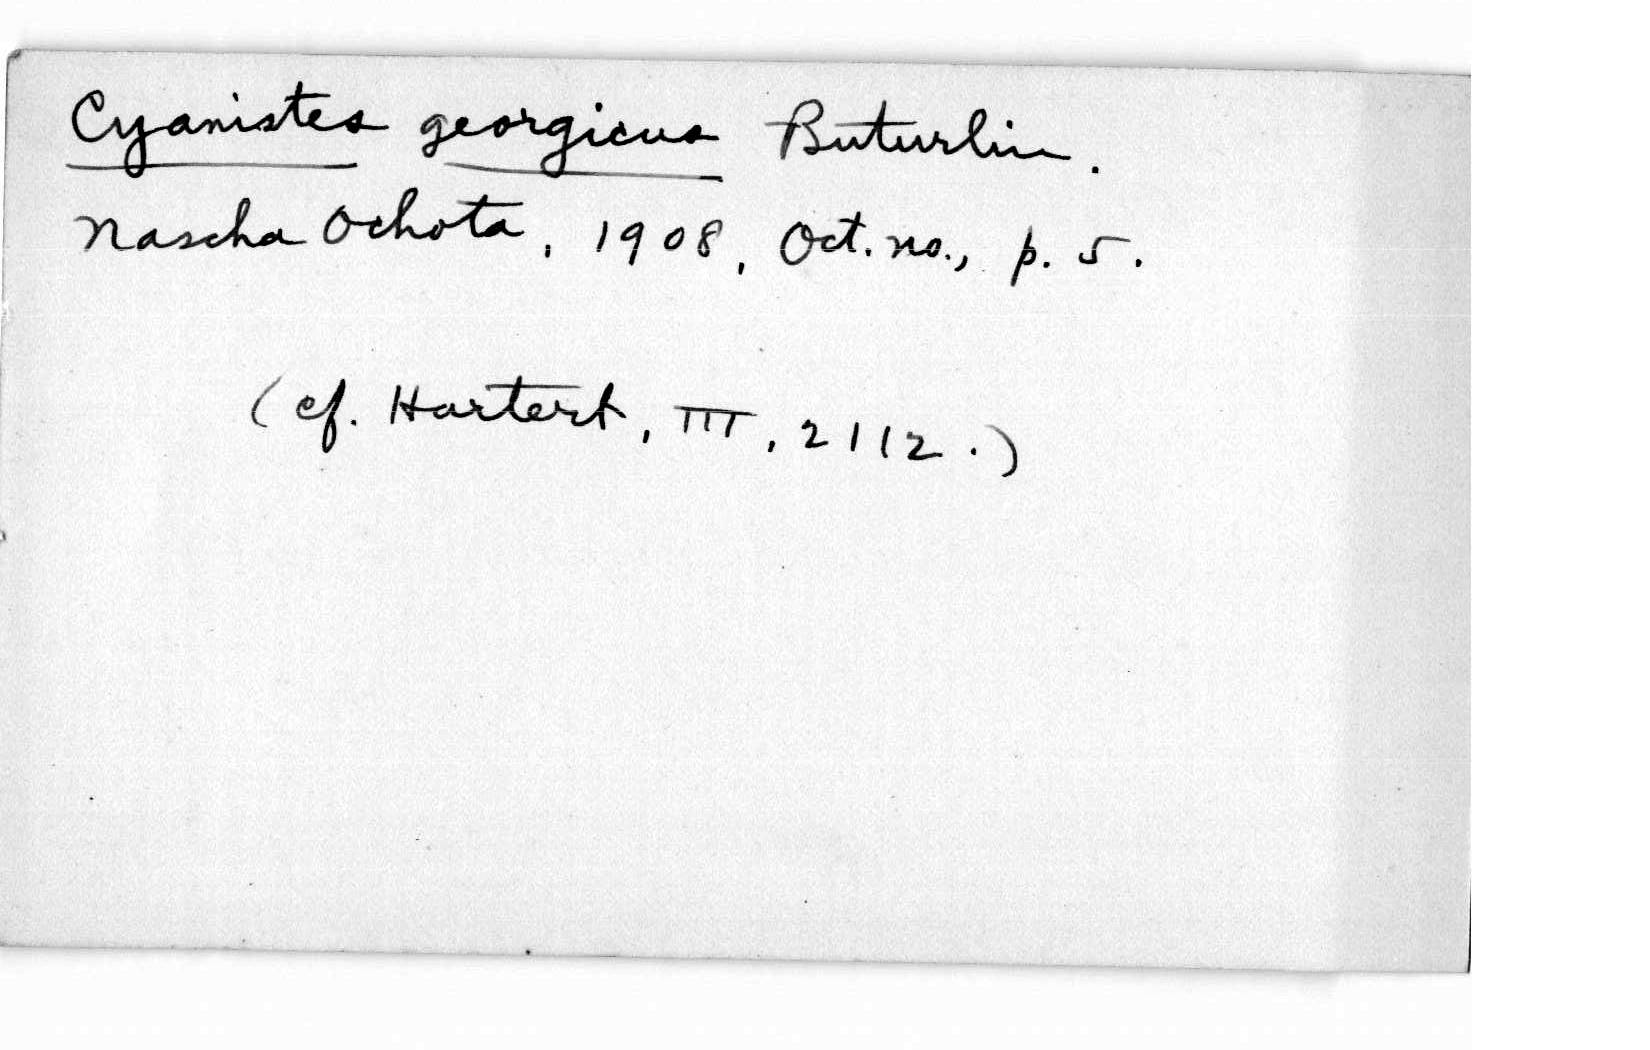 Cyanistes georgicus Buturlin.
Nascha Ochota, 1908, Oct. no., p. 5.
(cf. Hartert, III, 2112.)